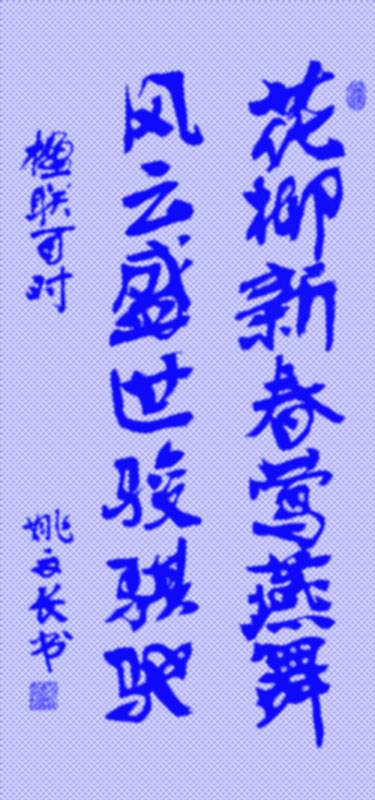 花柳新春莺燕舞
风云盛世骏骐驰
楹联可时
姚文长书